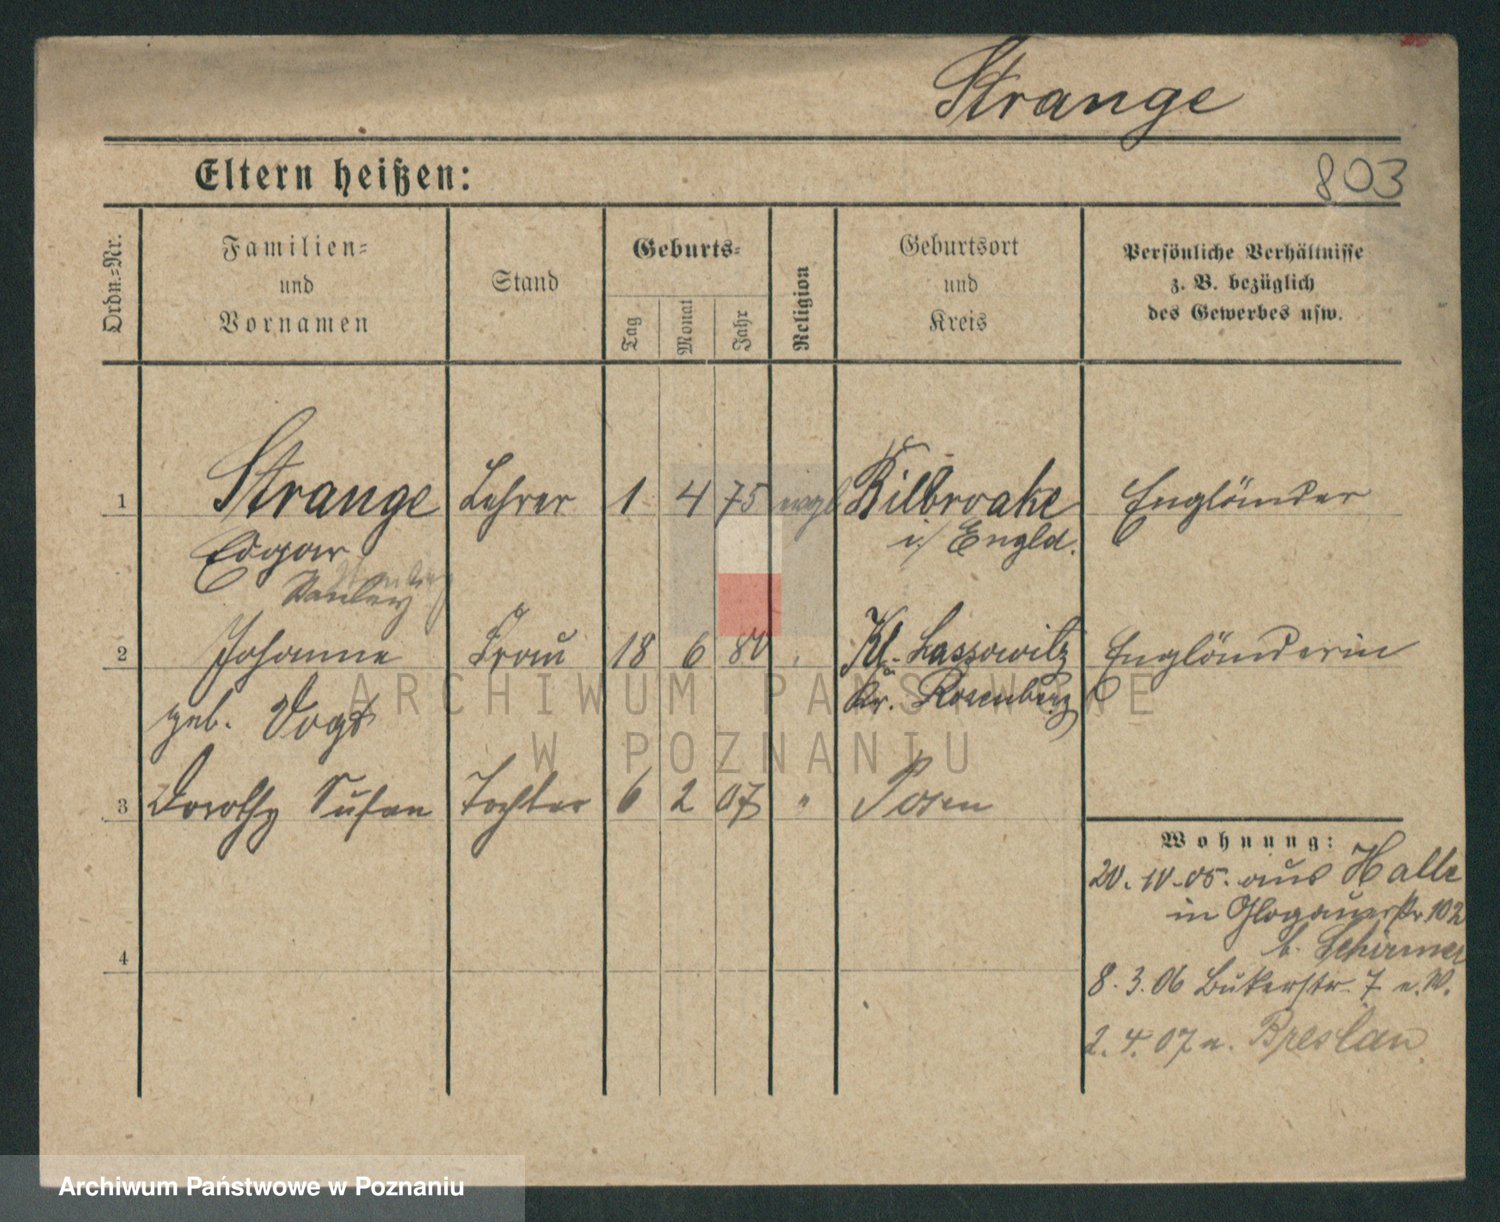 Strange
803
Eltern heißen:
Ordn.-Nr.
Familien-
und
Vornamen
Stand
Geburts-
Tag
Monat
Jahr
Religion
Geburtsort
und
Kreis
Persönliche Verhältnisse
z. B. bezüglich
des Gewerbes usw.
1 Strange Lehrer 1 4 75 Kilbroake Engländer
Edgar i/ Engld.
Stanley
2 Johanne Frau 18 6 80 Kl. Lassowitz Engländerin
geb. Vogt Kr. Rosenberg
3 Dorothy Susan Tochter 6 2 07 " Posen
Wohnung:
20. 10. 05. aus Halle
in Glogauerstr. 102
b. Schirmer
4
8. 3. 06 Bukerstr. 7 e. W.
2. 4. 07 n. Breslau
ARCHIWUM PAŃSTWOWE
W POZNANIU
Archiwum Państwowe w Poznaniu